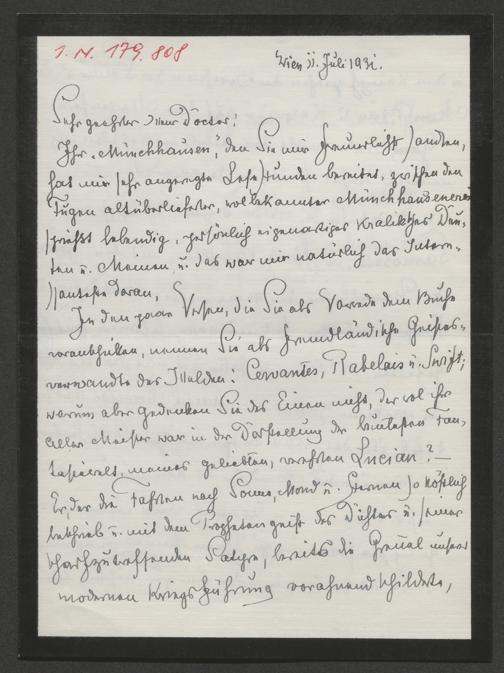 I. N. 179.808
Wien 11. Juli 1931.
Sehr geehrter Herr Doctor!
Ihr „Münchhausen", den Sie mir freundlichst sandten,
hat mir sehr angeregte Lesestunden bereitet, zwischen den
Fugen altüberlieferter, vollbekannter Münchhauseneien
sprießt lebendig, persönlich eigenartiges Deu-
ten u. Meinen u. das war mir natürlich das Inter-
essanteste daran.
In den paar Versen, die Sie als Vorrede dem Buche
vorausschicken, nennen Sie als fremdländische Geistes-
verwandte des Helden: Cervantes, Rabelais u. Swift;
warum aber gedenken Sie des Einen nicht, der vol ihr
aller Meister war in der Darstellung der buntesten Fan-
tasiewelt, meines geliebten, verehrten Lucian? —
Er, der die Fahrten nach Sonne, Mond u. Sternen so köstlich
beschrieb u. mit dem Prophetengeist des Dichters u. seiner
scharfzutreffenden Satyre, bereits die Greuel unserer
modernen Kriegsführung vorahnend schilderte,